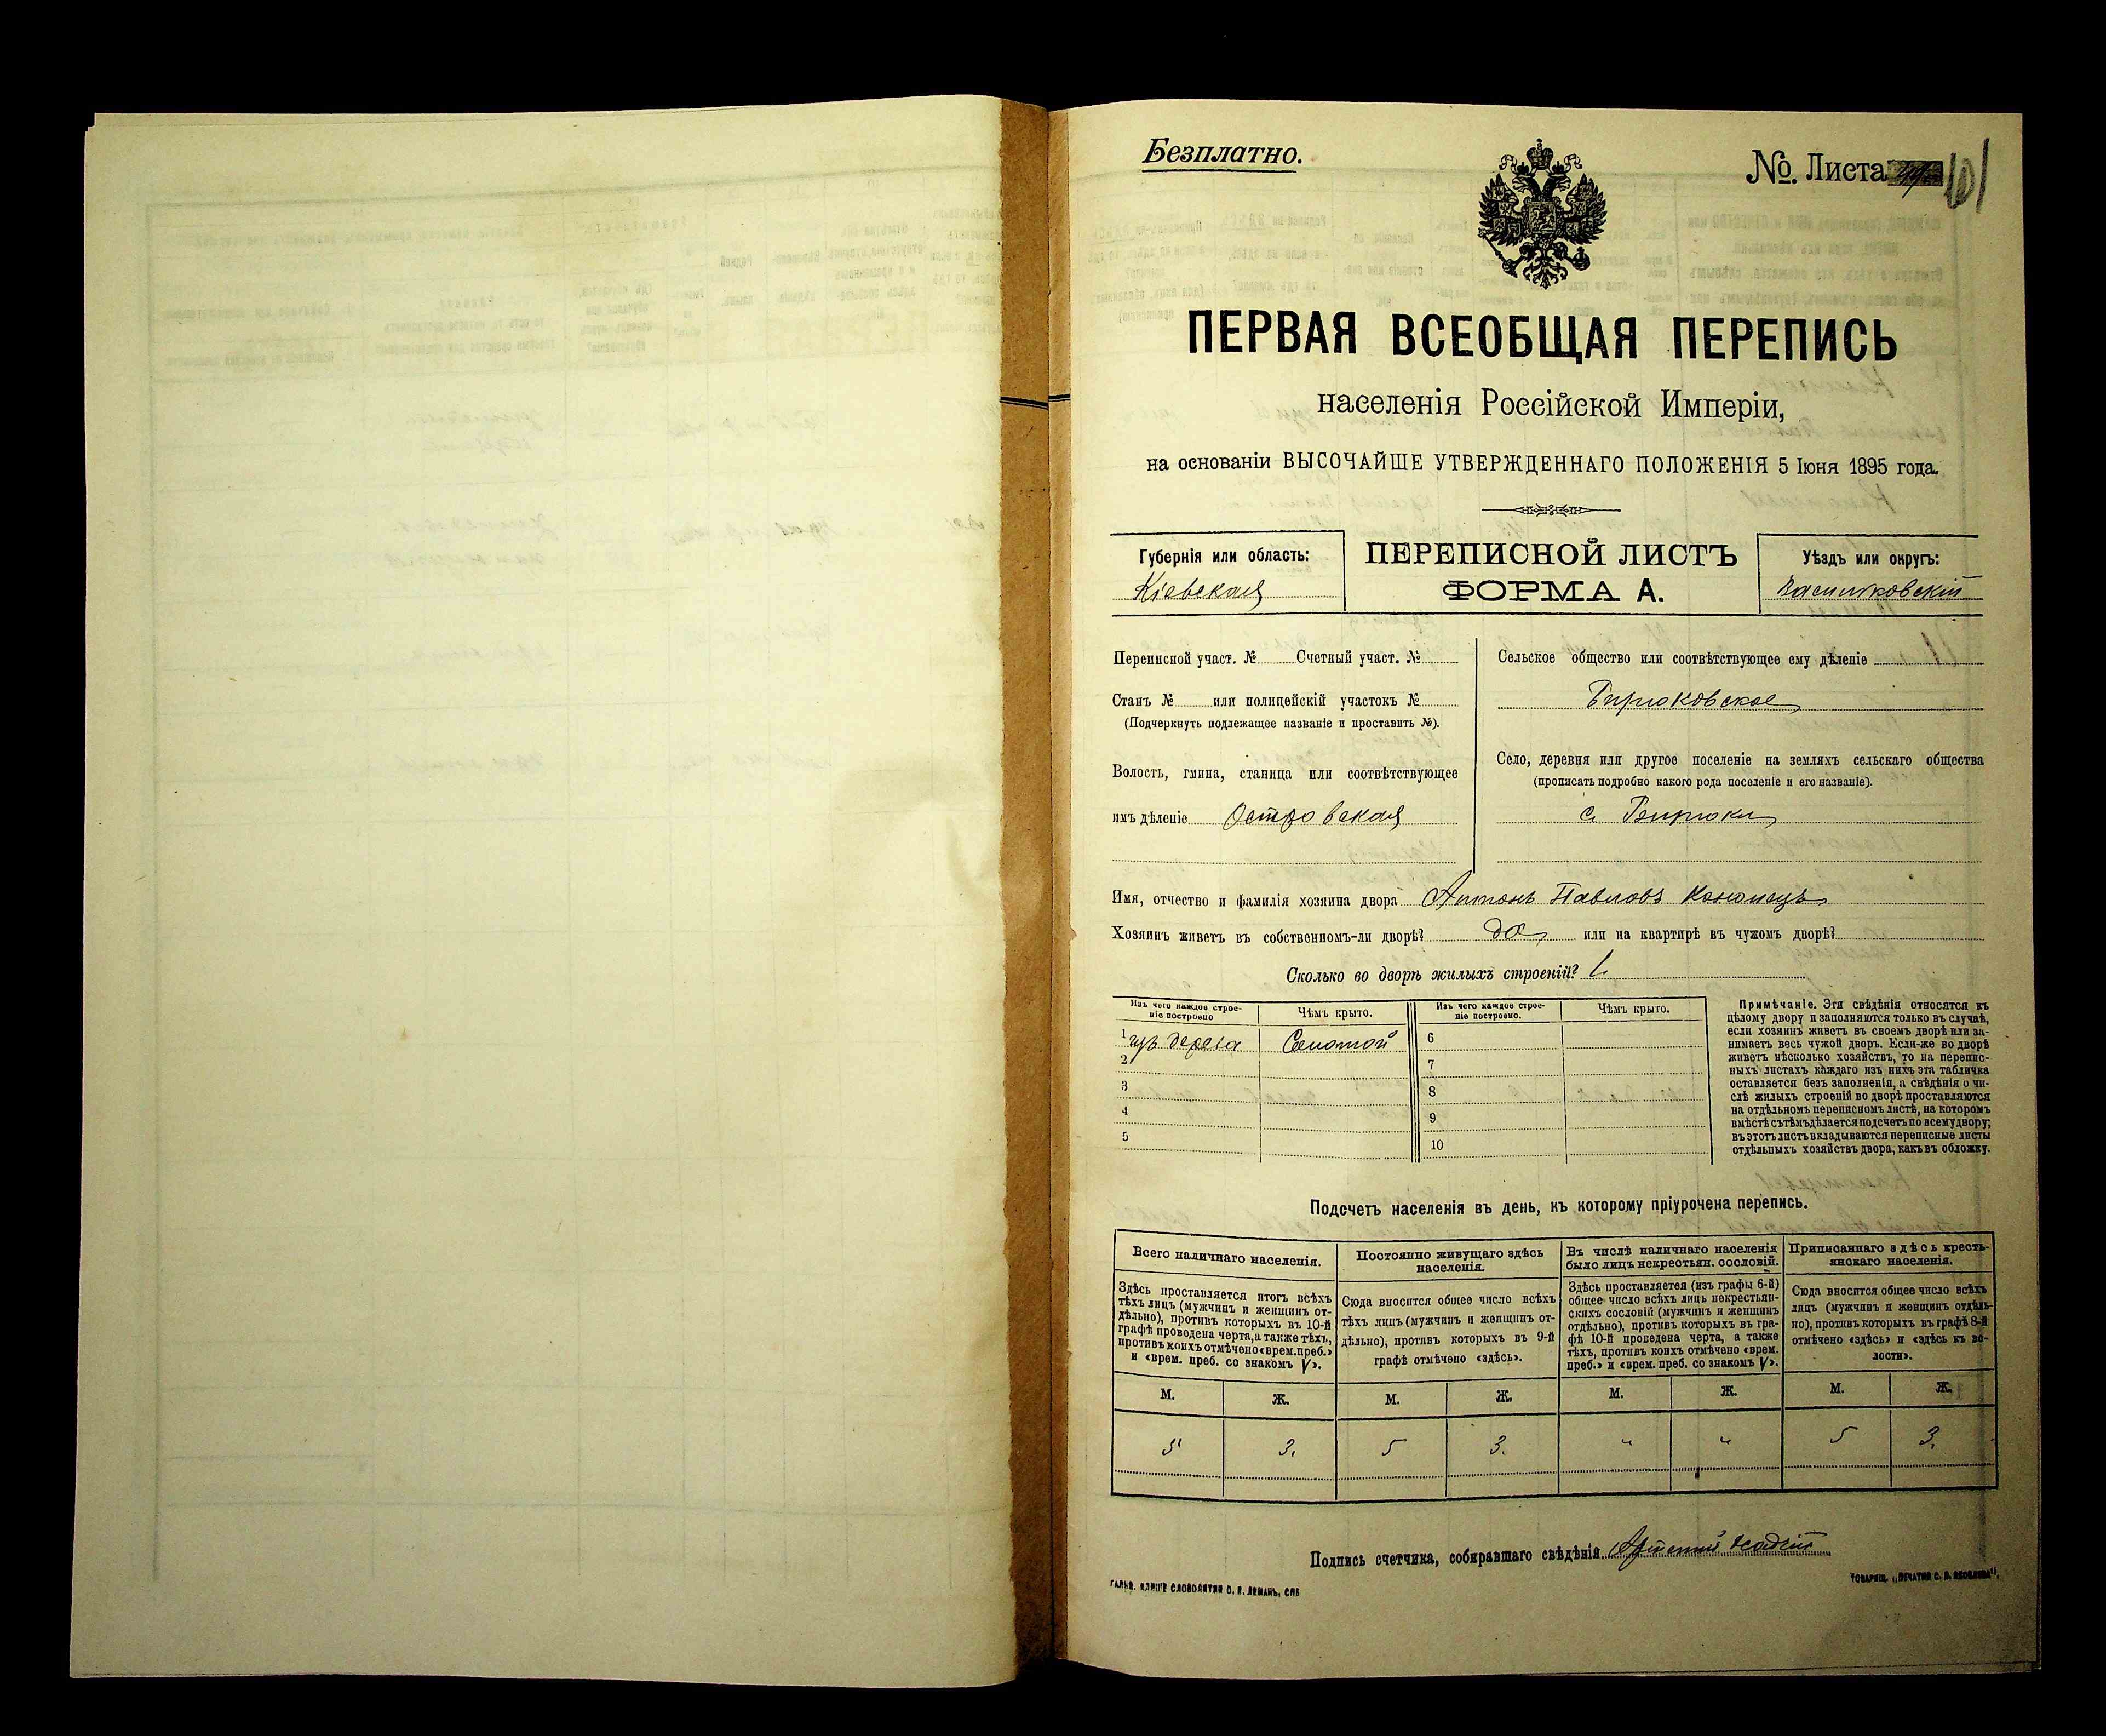 Безплатно.
№. Листа 101
ПЕРВАЯ ВСЕОБЩАЯ ПЕРЕПИСЬ
населенія Россійской Имперіи,
на основаніи ВЫСОЧАЙШЕ УТВЕРЖДЕННАГО ПОЛОЖЕНІЯ 5 Іюня 1895 года.
Губернія или область:
Кіевская
ПЕРЕПИСНОЙ ЛИСТЪ
ФОРМА А.
Уѣздъ или округъ:
Васильковскій
Переписной участ. № Счетный участ. №
Станъ № или полицейскій участокъ №
(Подчеркнуть подлежащее названіе и проставить №).
Волость, гмина, станица или соотвѣтствующее
имъ дѣленіе Островская
Сельское общество или соотвѣтствующее ему дѣленіе
Бирюковское
Село, деревня или другое поселеніе на земляхъ сельскаго общества
(прописать подробно какого рода поселеніе и его названіе).
с. Бирюки
Имя, отчество и фамилія хозяина двора Антонъ Павловъ Кононецъ
Хозяинъ живетъ въ собственномъ-ли дворѣ? да или на квартирѣ въ чужомъ дворѣ?
Сколько во дворѣ жилыхъ строеній? 1.
Изъ чего каждое строе-
ніе построено
Чѣмъ крыто.
Изъ чего каждое строе-
ніе построено.
Чѣмъ крыто.
1 изъ дерева Соломой
2
3
4
5
6
7
8
9
10
Примѣчаніе. Эти свѣдѣнія относятся къ
цѣлому двору и заполняются только въ случаѣ,
если хозяинъ живетъ въ своемъ дворѣ или за-
нимаетъ весь чужой дворъ. Если-же во дворѣ
живетъ нѣсколько хозяйствъ, то на перепис-
ныхъ листахъ каждаго изъ нихъ эта табличка
оставляется безъ заполненія, а свѣдѣнія о чи-
слѣ жилыхъ строеній во дворѣ проставляются
на отдѣльномъ переписномъ листѣ, на которомъ
вмѣстѣ съ тѣмъ дѣлается подсчетъ по всему двору;
въ этотъ листъ вкладываются переписные листы
отдѣльныхъ хозяйствъ двора, какъ въ обложку.
Подсчетъ населенія въ день, къ которому пріурочена перепись.
Всего наличнаго населенія.
Здѣсь проставляется итогъ всѣхъ
тѣхъ лицъ (мужчинъ и женщинъ от-
дѣльно), противъ которыхъ въ 10-й
графѣ проведена черта, а также тѣхъ,
противъ коихъ отмѣчено «врем. преб.»
и «врем. преб. со знакомъ V».
Постоянно живущаго здѣсь
населенія.
Сюда вносится общее число всѣхъ
тѣхъ лицъ (мужчинъ и женщинъ от-
дѣльно), противъ которыхъ въ 9-й
графѣ отмѣчено «здѣсь».
Въ числѣ наличнаго населенія
было лицъ некрестьян. сословій.
Здѣсь проставляется (изъ графы 6-й)
общее число всѣхъ лицъ некрестьян-
скихъ сословій (мужчинъ и женщинъ
отдѣльно), противъ которыхъ въ гра-
фѣ 10-й проведена черта, а также
тѣхъ, противъ коихъ отмѣчено «врем.
преб.» и «врем. преб. со знакомъ V».
Приписаннаго здѣсь кресть-
янскаго населенія.
Сюда вносится общее число всѣхъ
лицъ (мужчинъ и женщинъ отдѣль-
но), противъ которыхъ въ графѣ 8-й
отмѣчено «здѣсь» и «здѣсь къ во-
лости».
М. Ж. М. Ж. М. Ж. М. Ж.
5 3. 5 3. " " 5 3.
Подпись счетчика, собиравшаго свѣдѣнія
ГАЛЬВ. КЛИШЕ СЛОВОЛИТНИ О. И. ЛЕМАНЪ, СПБ
ТОВАРИЩ. „ПЕЧАТНЯ С. П. ЯКОВЛЕВА".